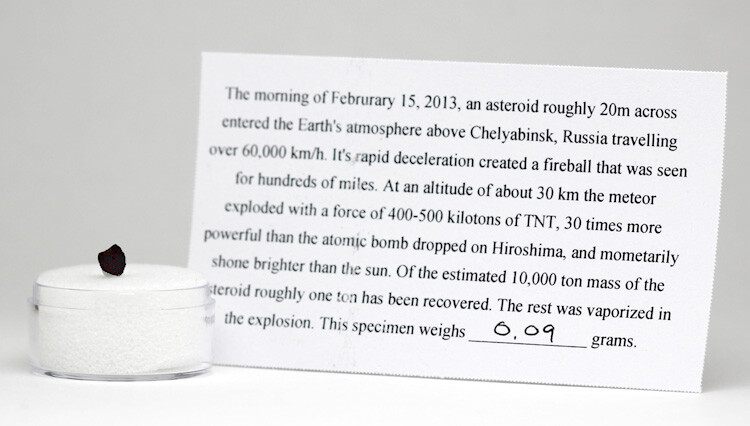 The morning of Februrary 15, 2013, an asteroid roughly 20m across
entered the Earth's atmosphere above Chelyabinsk, Russia travelling
over 60,000 km/h. It's rapid deceleration created a fireball that was seen
for hundreds of miles. At an altitude of about 30 km the meteor
exploded with a force of 400-500 kilotons of TNT, 30 times more
powerful than the atomic bomb dropped on Hiroshima, and mometarily
shone brighter than the sun. Of the estimated 10,000 ton mass of the
steroid roughly one ton has been recovered. The rest was vaporized in
the explosion. This specimen weighs 0.09 grams.